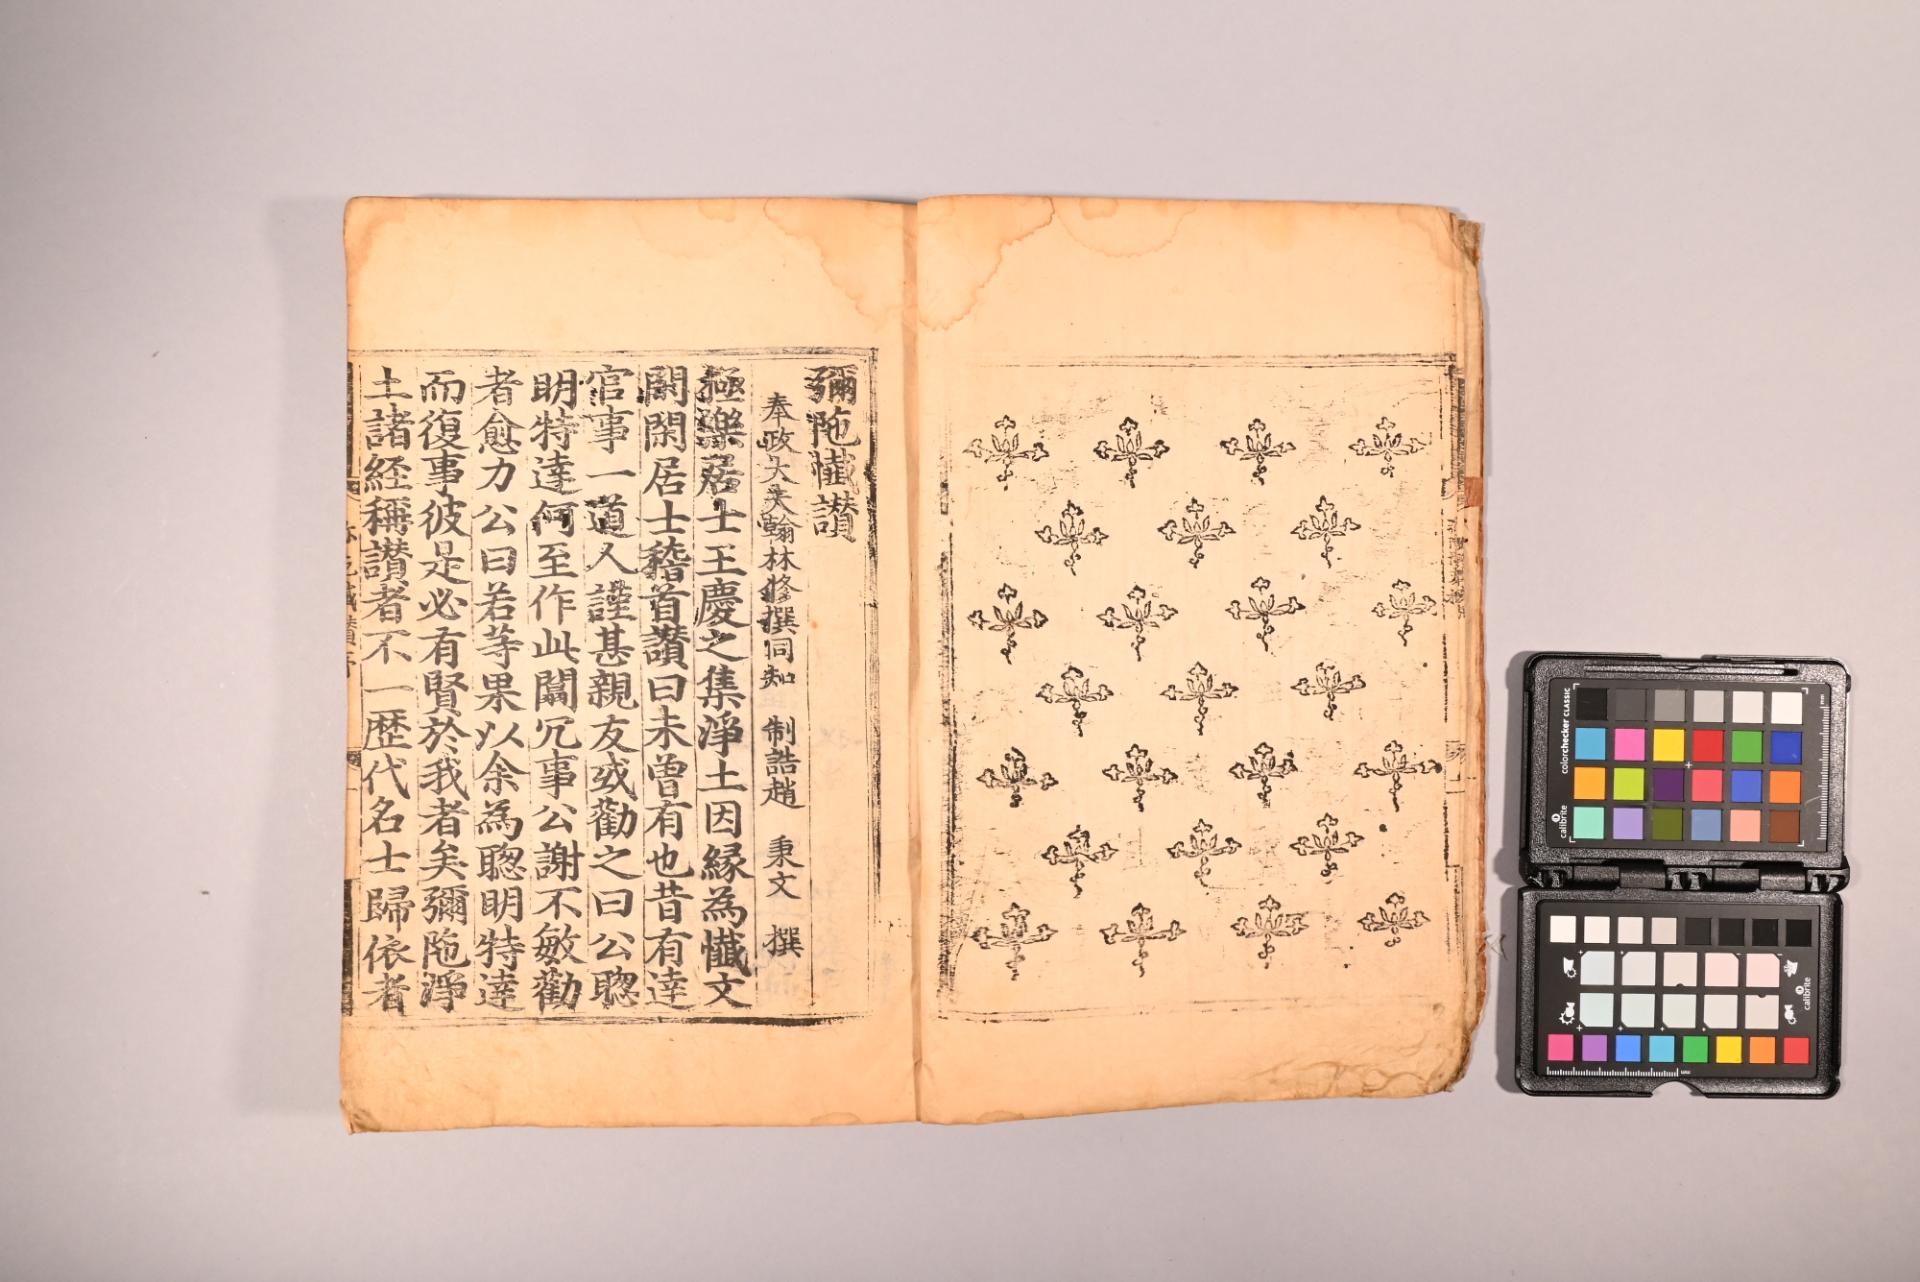 彌陁懺讃
奉政大夫翰林修撰同知 制誥趙 秉文 撰
極樂居士王慶之集淨土因縁為懺文
閑閑居士稽首讃曰未曾有也昔有達
官事一道人謹甚親友或勸之曰公聦
明特達何至作此闒冗事公謝不敏勸
者愈力公曰若等果以余為聦明特達
而復事彼是必有賢於我者矣彌陁淨
土諸經稱讃者不一歷代名士歸依者
colorchecker CLASSIC
calibrite
calibrite